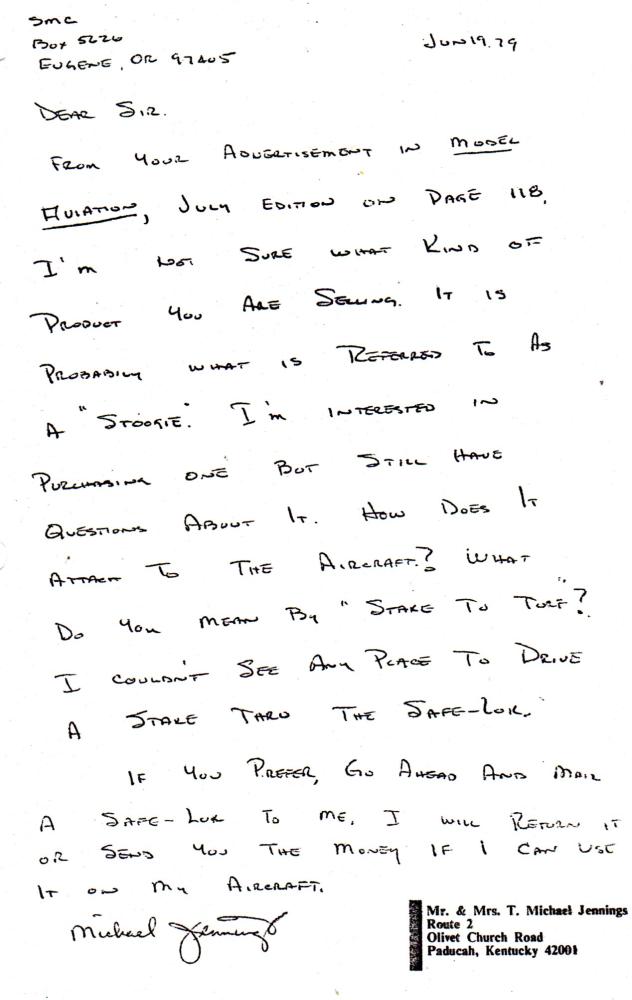 SMC
BOX 5226
EUGENE, OR 97405
JUN 19. 79
DEAR SIR.
FROM YOUR ADVERTISEMENT IN MODEL
AVIATION, JULY EDITION ON PAGE 118,
I'M NOT SURE WHAT KIND OF
PRODUCT YOU ARE SELLING. IT IS
PROBABILY WHAT IS REFERRED TO AS
A "STOOGIE". I'M INTERESTED IN
PURCHASING ONE BUT STILL HAVE
QUESTIONS ABOUT IT. HOW DOES IT
ATTACH TO THE AIRCRAFT? WHAT
DO YOU MEAN BY "STAKE TO TURF"?
I COULDN'T SEE ANY PLACE TO DRIVE
A STAKE THRU THE SAFE-LOK.
IF YOU PREFER, GO AHEAD AND MAIL
A SAFE-LOK TO ME. I WILL RETURN IT
OR SEND YOU THE MONEY IF I CAN USE
IT ON MY AIRCRAFT.
Michael Jennings
Mr. & Mrs. T. Michael Jennings
Route 2
Olivet Church Road
Paducah, Kentucky 42001